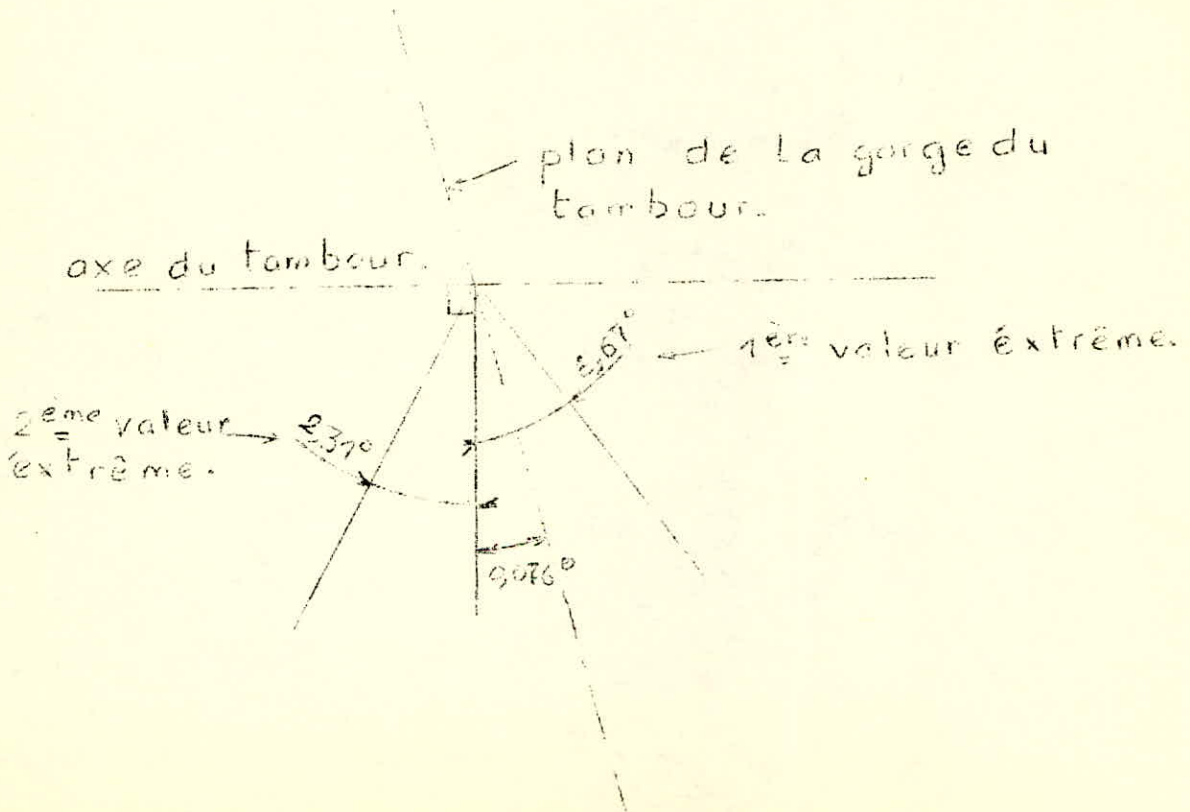 plan de la gorge du
tambour.
axe du tambour.
1ère valeur éxtrême.
2ème valeur
éxtrême.
2,31°